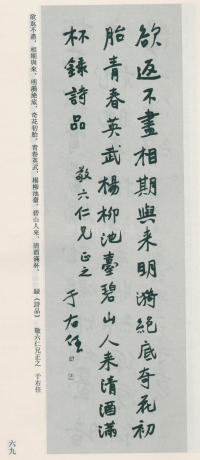 欲返不盡相期與来明漪絕底奇花初
胎青春英武楊柳池臺碧山人来清酒滿
杯錄詩品
敬六仁兄正之
于右任
欲返不盡，相期與來，明漪絶底，奇花初胎，青春英武，楊柳池臺，碧山人來，清酒滿杯。 録《詩品》 敬六仁兄正之 于右任
六九